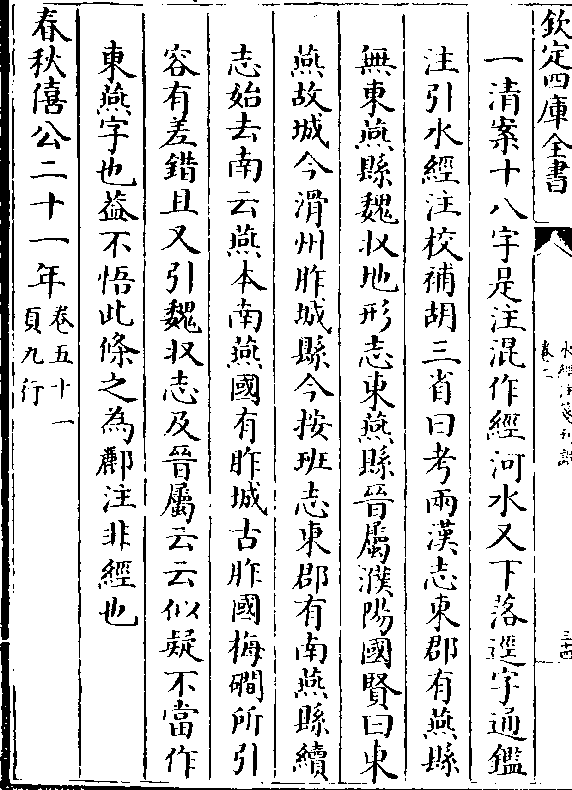 欽定四庫全書
水經注箋刊誤
卷二
三十四
一清案十八字是注混作經河水又下落逕字通鑑
注引水經注校補胡三省曰考兩漢志東郡有燕縣
無東燕縣魏收地形志東燕縣晉屬濮陽國賢曰東
燕故城今滑州胙城縣今按班志東郡有南燕縣續
志始去南云燕本南燕國有胙城古胙國梅磵所引
容有差錯且又引魏收志及晉屬云云似疑不當作
東燕字也葢不悟此條之為酈注非經也
春秋僖公二十一年卷五十一
頁九行